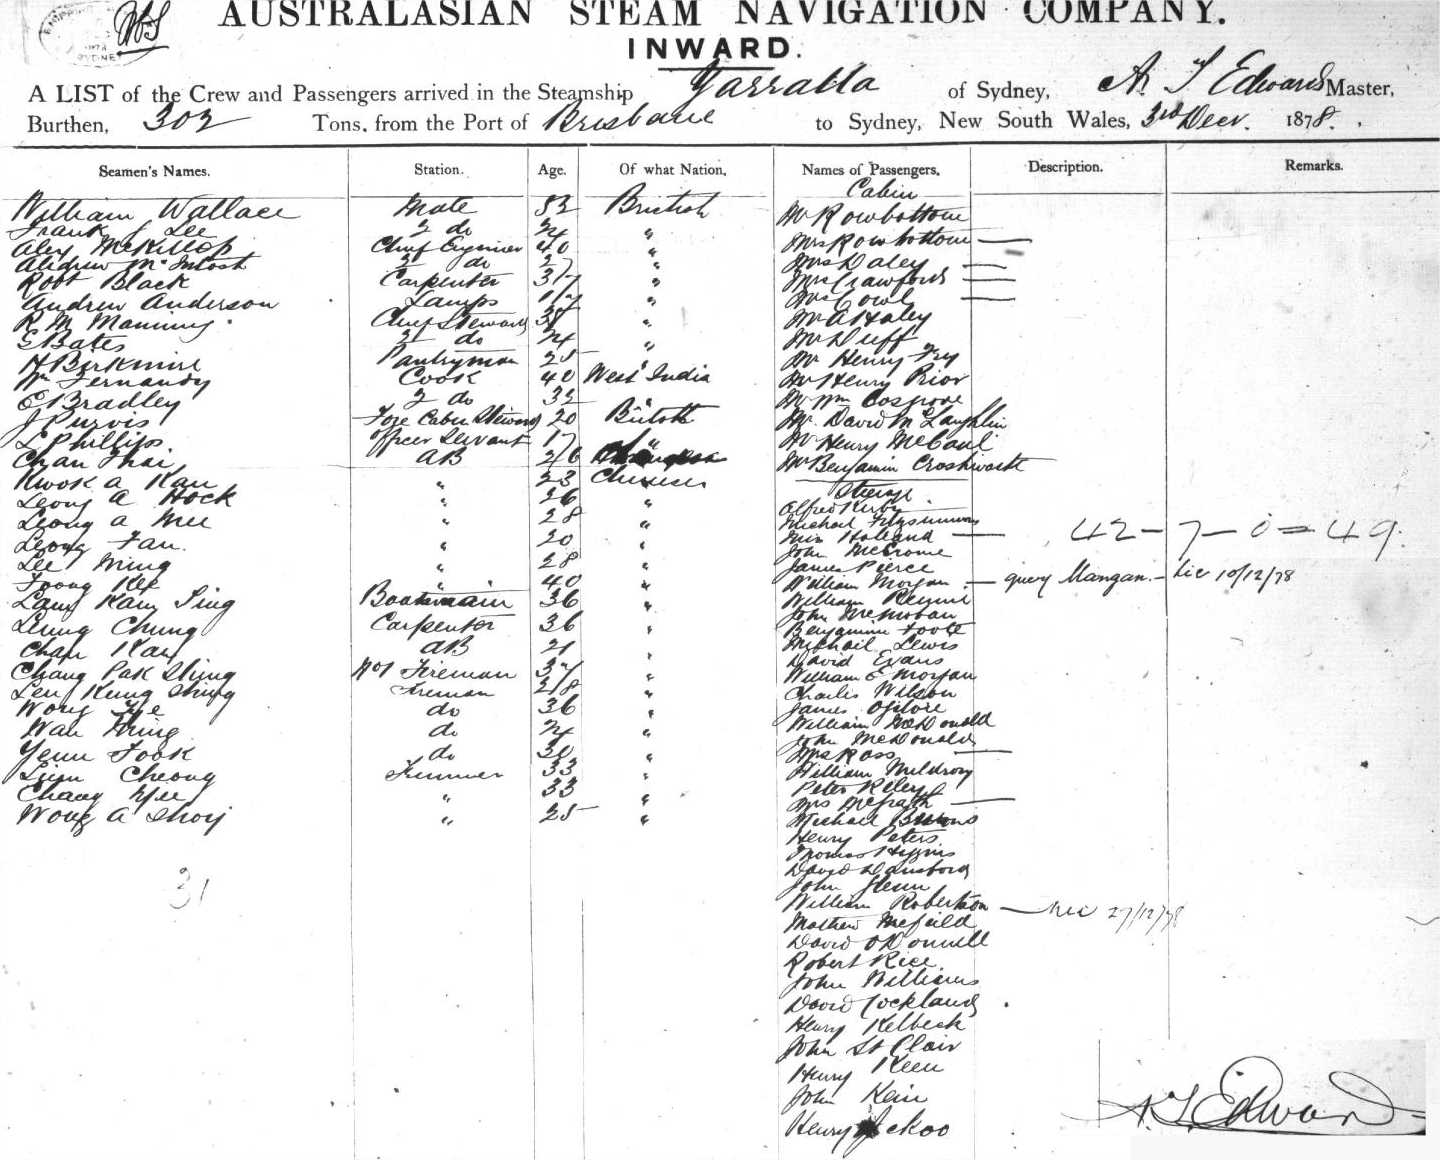 AUSTRALASIAN STEAM NAVIGATION COMPANY.
INWARD.
A LIST of the Crew and Passengers arrived in the Steamship Yarralla of Sydney, A. T. Edwards Master,
Burthen, 302 Tons, from the Port of Brisbane to Sydney, New South Wales, 3rd Decr. 1878.
Seamen's Names. Station. Age. Of what Nation. Names of Passengers. Description. Remarks.
Cabin
William Wallace Mate 52 British Mr Rowbottom
Frank J Lee 2 do 24 " Mrs Rowbottom —
Alex McKillop Chief Engineer 40 " Mrs Daley —
Andrew McIntosh 2 do 27 " Mrs Crawford —
Robt Black Carpenter 37 " Mrs Cowl —
Andrew Anderson Lamps 17 " Mr A Haley
R M Manning Chief Steward 38 " Mr Duff
E Bates 2 do 24 " Mr Henry Fry
H Birkmire Pantryman 25 " Mr Henry Prior
Wm Fernandy Cook 40 West India Mr Wm Cosgrove
E Bradley 2 do 32 " Mr David McLaughlin
J Purvis Fore Cabin Steward 20 British Mr Henry McCaul
L Phillips Officer Servant 17 " Mr Benjamin Croshworth
Chan Thai AB 26
Kwok a Kau " 23 Chinese Steerage
Leong a Hock " 26 " Alfred Kirby
Leong a Mee " 28 " Michael Fitzsimmons
Leong Fau " 20 " Miss Holland — 42 - 7 - 0 = 49.
Lee Ming " 28 " John McCrome
Foong Kee " 40 " James Pierce
Lam Kam Sing Boatswain 36 " William Morgan — query Mangan — 10/12/78
Leung Chung Carpenter 36 " William
Chan Kau AB 21 " John
Chang Pak Shing No 1 Fireman 37 " Benjamin Foote
Leu Keung Shing Fireman 28 " Michail Lewis
Wong Yee do 36 " David Evans
Wan Hing do 24 " William E Morgan
Yeun Fook do 30 " Charles Wilson
Liem Cheong Trimmer 33 " James Ogilvie
Chang Yee " 33 " William McDonald
Wong a Shoy " 25 " John McDonald
31
Mrs Ross —
William Meldrory
Peter Riley
Mrs McGrath —
Michael Burns
Henry Peters
Thomas Higgins
David
John Glenn
William Robertson — 27/12/78
Mathew Mefield
David O'Donnell
Robert Rice
John Williams
David Cockland
Henry Kelbeck
John St Clair
Henry Keen
John Kein
Henry
A. T. Edwards